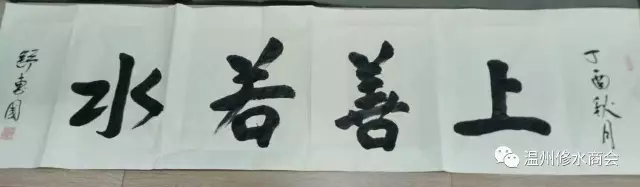 丁酉秋月
上善若水
舒惠国
温州修水商会